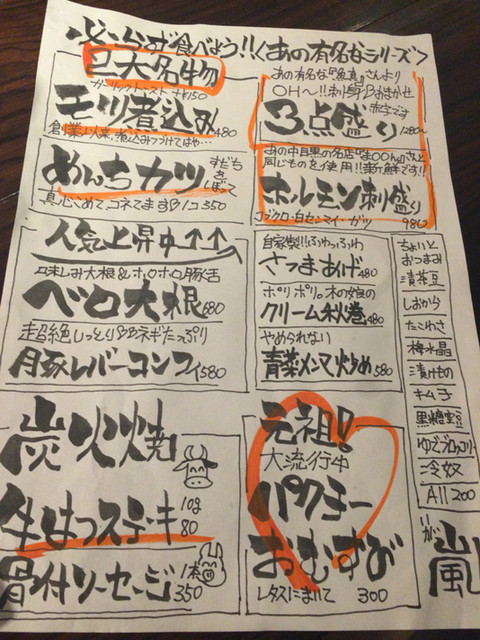 必らず食べよう!!
くあの有名なシリーズ>
二大名物
ガーリックトースト +¥150
モツ煮込み 480
創業以来、煮込みつづけてはや…
めんちカツ
すだち
を
しぼって
真心こめて、コネてます 1コ 350
あの有名な『魚真』さんより
OH〜!!刺身おまかせ
3点盛り 1280〜
赤字です
同じものを使用!!新鮮です!!
ホルモン刺盛り
コブクロ・白センマイ・ガツ 980
人気上昇中↑↑
味しみ大根&ホロホロ豚舌
ベロ大根 680
超絶しっとり ネギたっぷり
豚レバーコンフィ 580
自家製!!ふわっふわ
さつまあげ 480
ポリポリ。木の娘の
クリーム秋巻 480
やめられない
青菜メンマ炒め 580
ちょいと
おつまみ
漬茶豆
しおから
たこわさ
梅水晶
漬けもの
キム子
黒糖空豆
ゆでブロッコリー
冷奴
All 200
炭火焼
牛はつステーキ
10g
80
骨付ソーセージ
1本
350
元祖!
大流行中
パクチー
おむすび
レタスにまいて 300
嵐